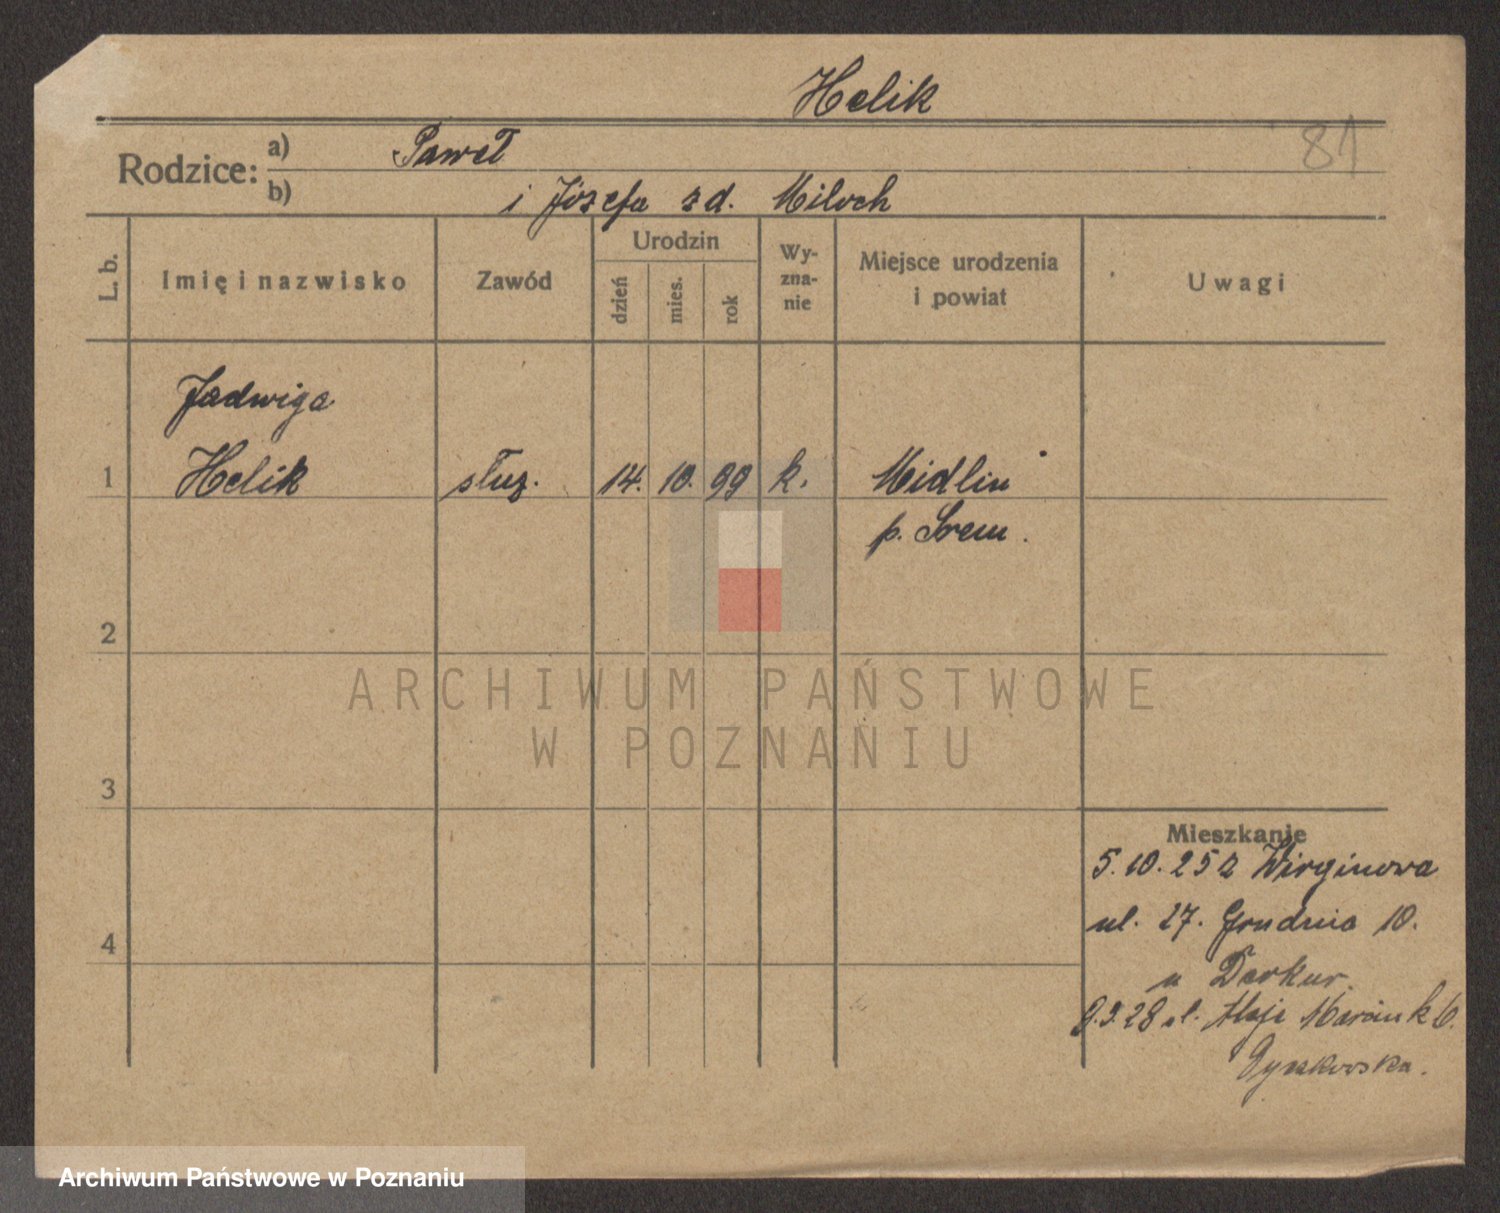 Helik
81
Rodzice: a) Paweł
b) i Józefa zd. Miloch
L. b.
Imię i nazwisko
Zawód
Urodzin
dzień
mies.
rok
Wy-
zna-
nie
Miejsce urodzenia
i powiat
Uwagi
Jadwiga
1 Helik służ. 14. 10. 99 k. Midlin
p. Srem.
2
3
4
ARCHIWUM PAŃSTWOWE
W POZNANIU
Mieszkanie
5.10.25 z Wirginowa
ul. 27. Grudnia 10.
u
9.9.28 Marcink
Archiwum Państwowe w Poznaniu